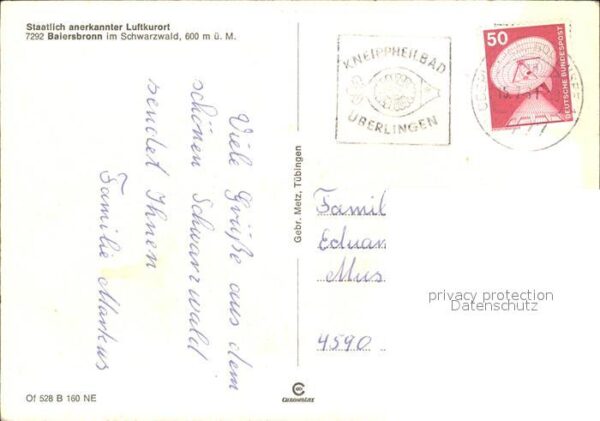 Staatlich anerkannter Luftkurort
7292 Baiersbronn im Schwarzwald, 600 m ü. M.
Viele Grüße aus dem
schönen Schwarzwald
sendet Ihnen
Familie Markus
Gebr. Metz, Tübingen
KNEIPPHEILBAD
ÜBERLINGEN
50
DEUTSCHE BUNDESPOST
Famil
Eduar
Mus
4590
privacy protection
Datenschutz
Of 528 B 160 NE